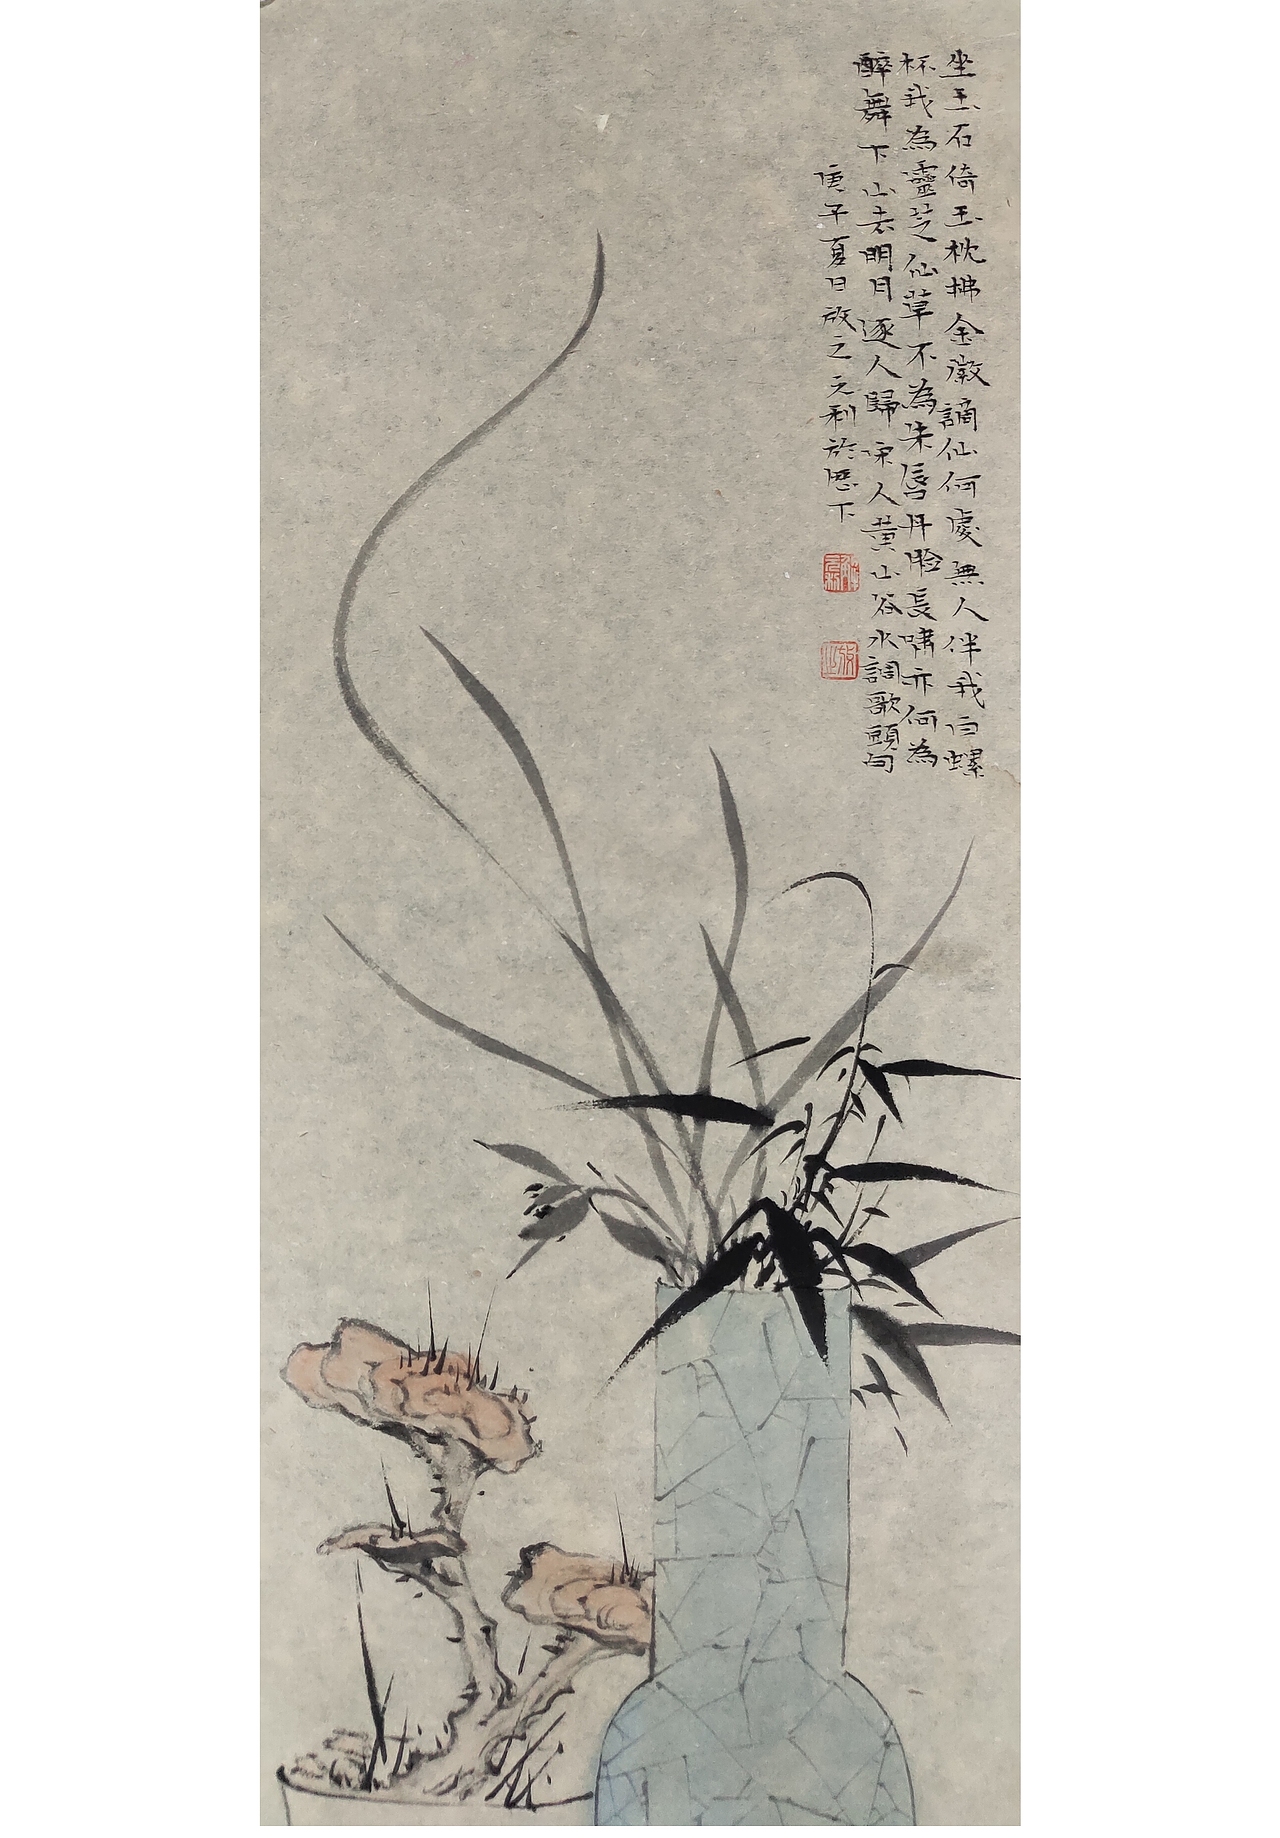 坐玉石倚玉枕拂金徽謫仙何處無人伴我白螺
杯我為靈芝仙草不為朱唇丹臉長嘯亦何為
醉舞下山去明月逐人歸宋人黃山谷水調歌頭句
庚子夏日放之元利於歷下